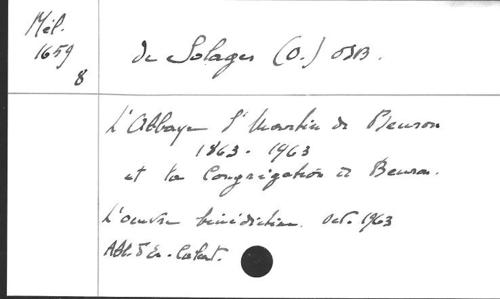 Mél.
1659
8
de Solages (O.) OSB.
L'Abbaye St Martin de Beuron
1863 - 1963
et la Congrégation de Beuron.
L'oeuvre bénédictine. Oct. 1963
Abb. d'En-Calcat.